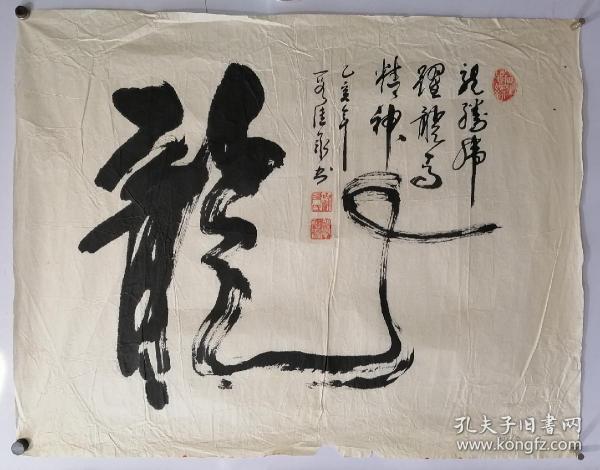 龍腾虎
躍龍馬
精神
乙亥年
書
龍
孔夫子旧书网
www.kongfz.com